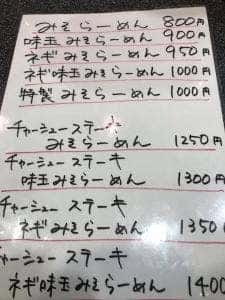 みそらーめん 800円
味玉みそらーめん 900円
ネギみそらーめん 950円
ネギ味玉みそらーめん 1000円
特製みそらーめん 1000円
チャーシューステーキ
みそらーめん 1250円
チャーシューステーキ
味玉みそらーめん 1300円
チャーシューステーキ
ネギみそらーめん 1350
チャーシューステーキ
ネギ味玉みそらーめん 1400